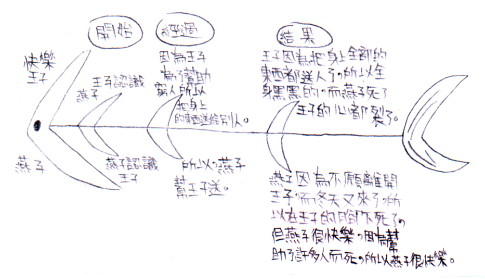 開始
經過
結果
快樂
王子
燕子
王子認識
燕子
燕子認識
王子
因為王子
為了幫助
窮人所以
把身上
的東西送給別人。
所以燕子
幫王子送。
王子因為把身上全部的
東西都送人了。所以全
身黑黑的。而燕子死了
王子的心都裂了。
燕子因為不願離開
王子。而冬天又來了。所
以在王子的腳下死了。
但燕子很快樂。因為幫
助了許多人而死。所以燕子很快樂。